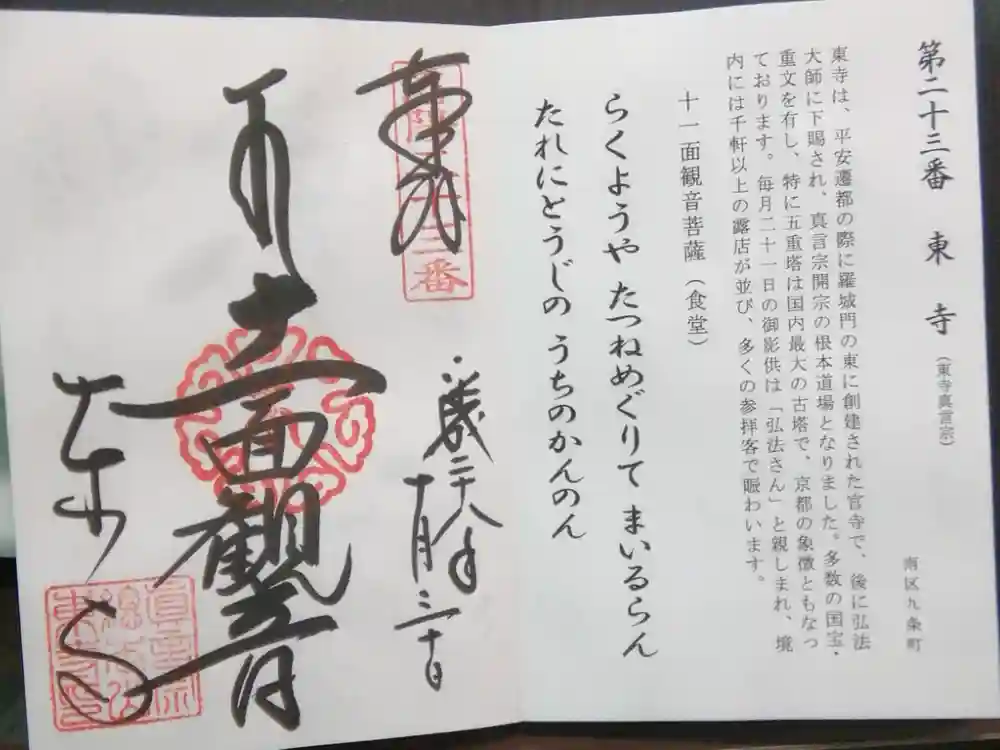 第二十三番 東寺(東寺真言宗)
南区九条町
東寺は、平安遷都の際に羅城門の東に創建された官寺で、後に弘法
大師に下賜され、真言宗開宗の根本道場となりました。多数の国宝・
重文を有し、特に五重塔は国内最大の古塔で、京都の象徴ともなっ
ております。毎月二十一日の御影供は「弘法さん」と親しまれ、境
内には千軒以上の露店が並び、多くの参拝客で賑わいます。
十一面観音菩薩(食堂)
らくようや たつねめぐりて まいるらん
たれにとうじの うちのかんのん
奉拝
二十八年
十月三十日
十一面観音
東寺